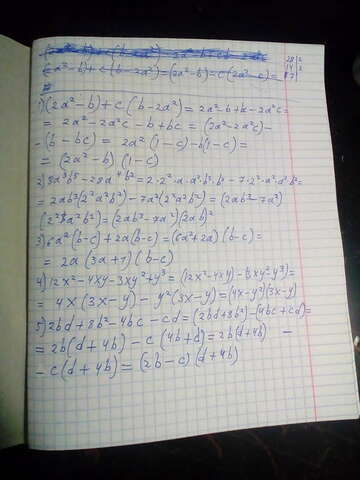 (2a²-b)+c(b-2a²)=(2a²-b)=c(2a²-c)=
1)(2a²-b)+c(b-2a²)=2a²-b+bc-2a²c=
=2a²-2a²c-b+bc=(2a²-2a²c)-
-(b-bc)=2a²(1-c)-b(1-c)=
=(2a²-b)(1-c)
2)8a³b⁵-28a⁴b²=2·2²·a·a²b²·b³-7·2²·a²·a²b²=
=2ab³(2²a²b²)-7a²(2²a²b²)=(2ab³-7a²)
(2²a²b²)=(2ab³-7a²)(2ab)²
3)6a²(b-c)+2a(b-c)=(6a²+2a)(b-c)=
=2a(3a+1)(b-c)
4)12x²-4xy-3xy²+y³=(12x²-4xy)-(3xy²y³)=
=4x(3x-y)-y²(3x-y)=(4x-y²)(3x-y)
5)2bd+8b²-4bc-cd=(2bd+8b²)-(4bc+cd)=
=2b(d+4b)-c(4b+d)=2b(d+4b)-
-c(d+4b)=(2b-c)(d+4b)